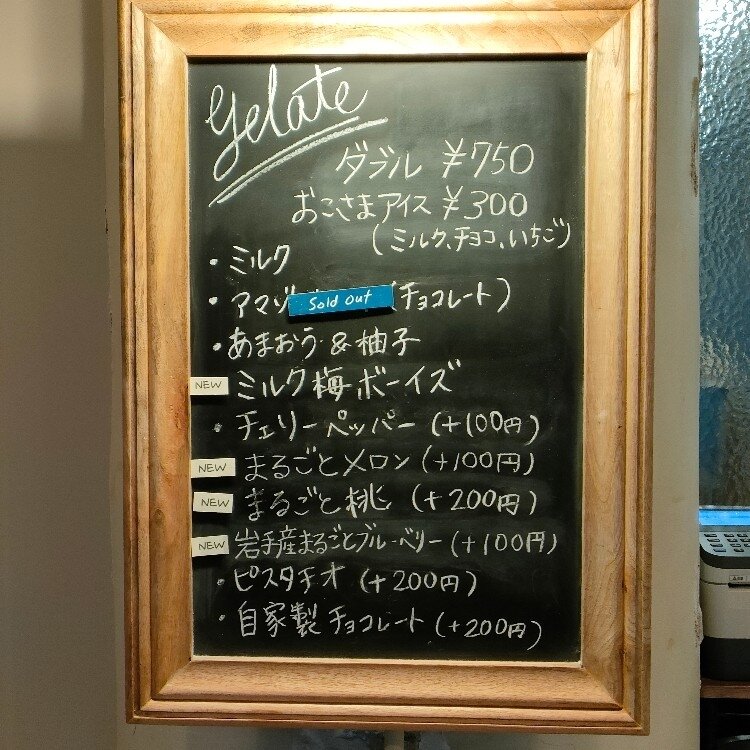 gelate
ダブル ¥750
おこさまアイス ¥300
(ミルク、チョコ、いちご)
・ミルク
・アマゾ Sold out (チョコレート)
・あまおう&柚子
NEW ミルク梅ボーイズ
・チェリーペッパー(+100円)
NEW まるごとメロン(+100円)
NEW まるごと桃(+200円)
NEW 岩手産まるごとブルーベリー(+100円)
・ピスタチオ(+200円)
・自家製チョコレート(+200円)